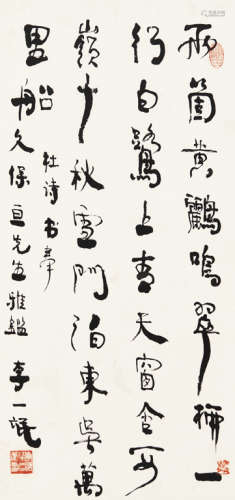 兩箇黃鸝鳴翠柳一
行白鷺上青天窗含西
嶺千秋雪門泊東吳萬
里船
杜詩书奉
久保亘先生雅鑑 李一氓